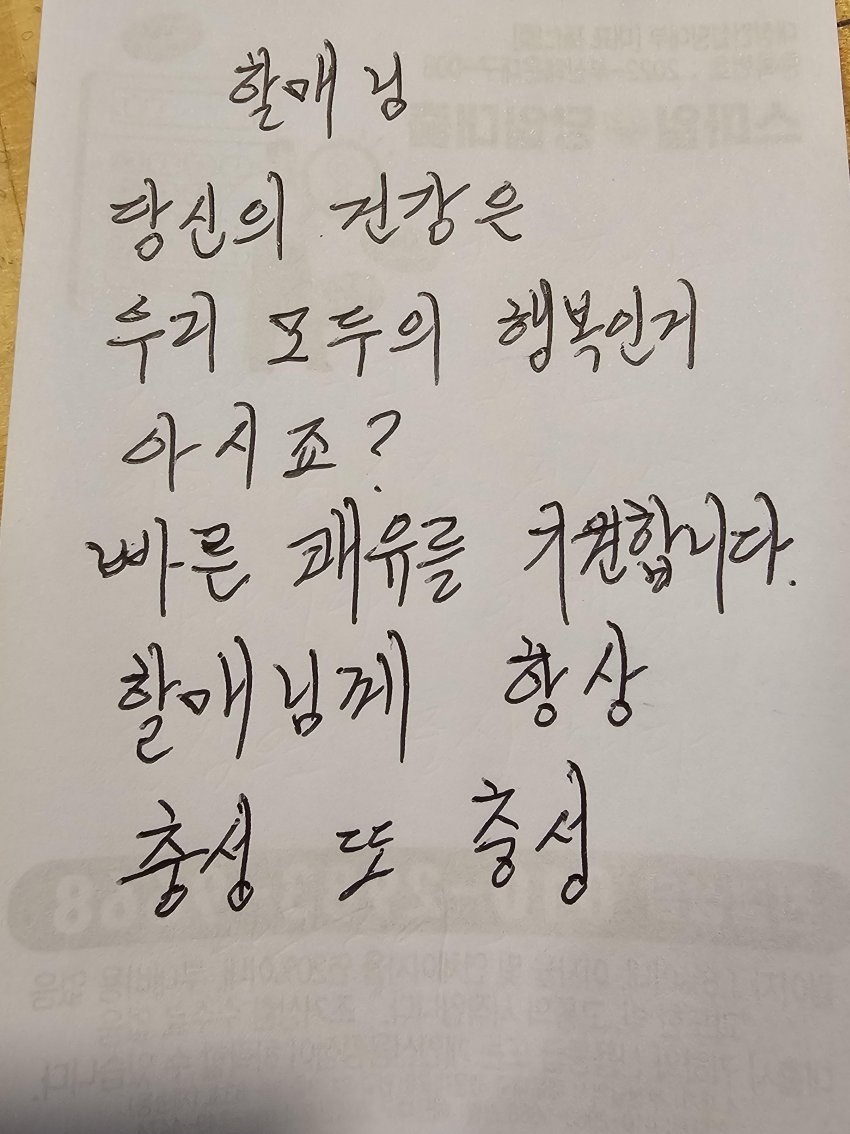 할매님
당신의 건강은
우리 모두의 행복인거
아시죠?
빠른 쾌유를 기원합니다.
할매님께 항상
충성 또 충성